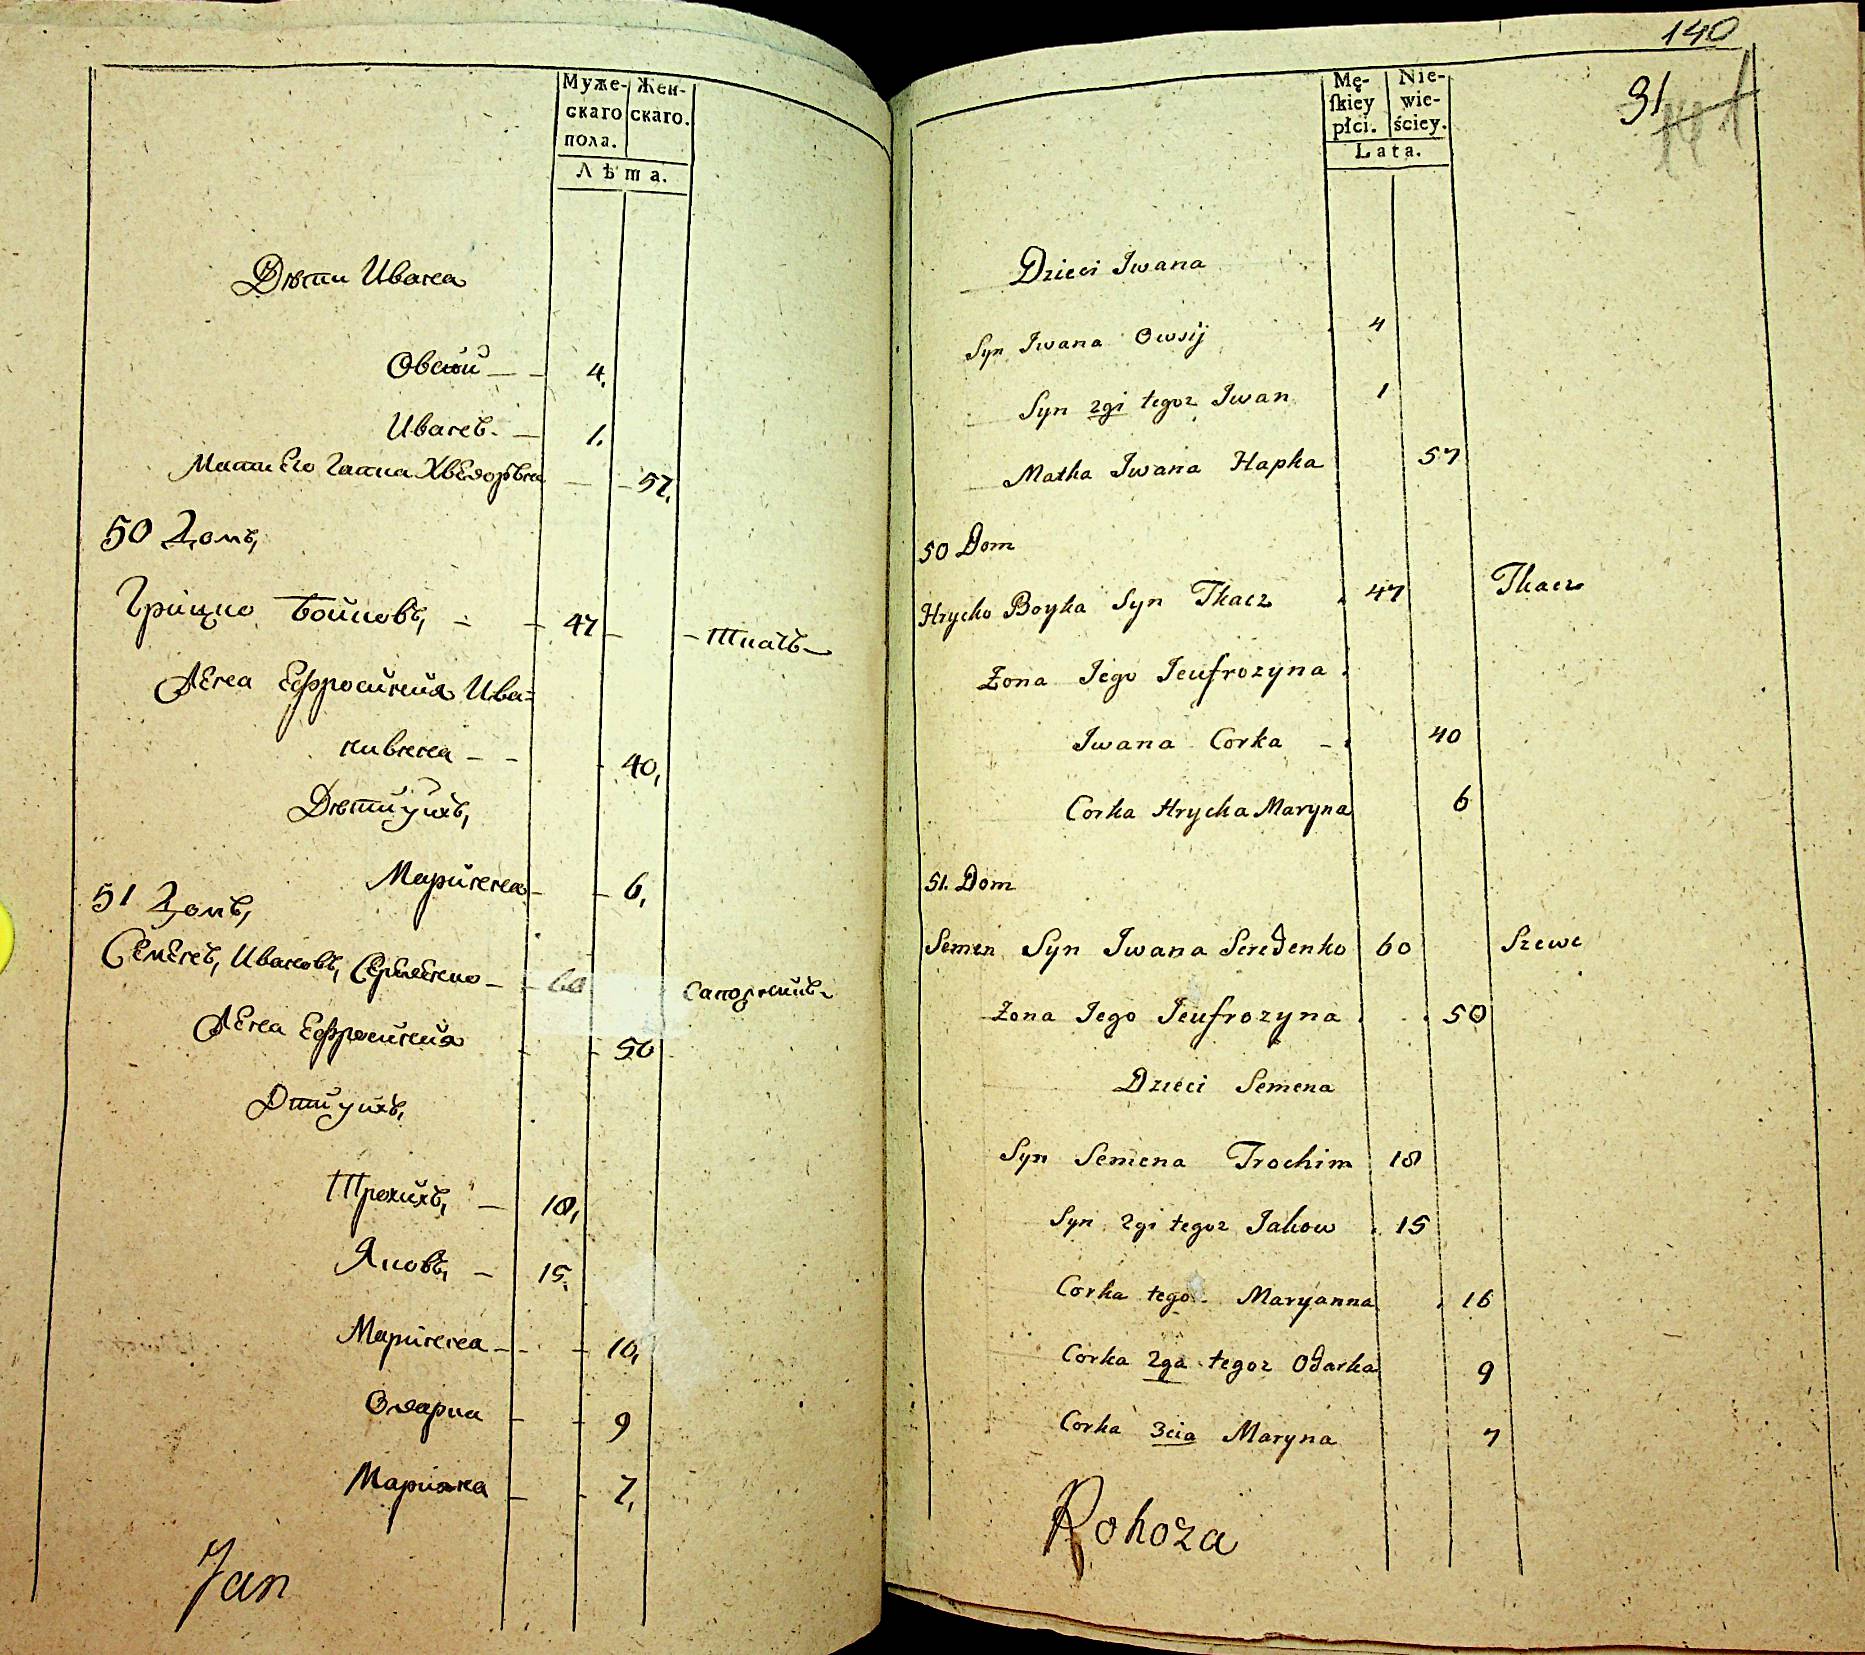 Муже- Жен-
скаго скаго.
пола.
Лѣта.
Дѣти Ивана
Овсій 4.
Иванъ. 1.
Мати Его Гапка Хведорѣвна 57.
50 Домъ,
Грицко Бойковъ, 47 Ткачъ
Жена Ефросинія Ива=
нивнна 40,
Дѣти ихъ,
Маринна 6,
51 Домъ,
Семенъ, Ивановъ, 60 Сапожникъ
Жена Ефросинія 50
Дти ихъ,
Трохимъ, 18,
Яковъ, 15.
Маринна 16,
Одарка 9
Маріяна 7,
Jan
140
31
Mę- Nie-
ſkiey wie-
płci. ściey.
Lata.
Dzieci Iwana
Syn Iwana Owsij 4
Syn 2gi tegoz Iwan 1
Matka Iwana Hapka 57
50 Dom
Hrycko Boyka Syn Tkacz 47 Tkacz
Żona Jego Jeufrozyna
Iwana Corka 40
Corka Hrycka Maryna 6
51. Dom
Semen Syn Iwana Seredenko 60 Szewc
Żona Jego Jeufrozyna 50
Dzieci Semena
Syn Semena Trochim 18
Syn 2gi tegoz Jakow 15
Corka tego Maryanna 16
Corka 2ga tegoz Odarka 9
Corka 3cia Maryna 7
Rohoza